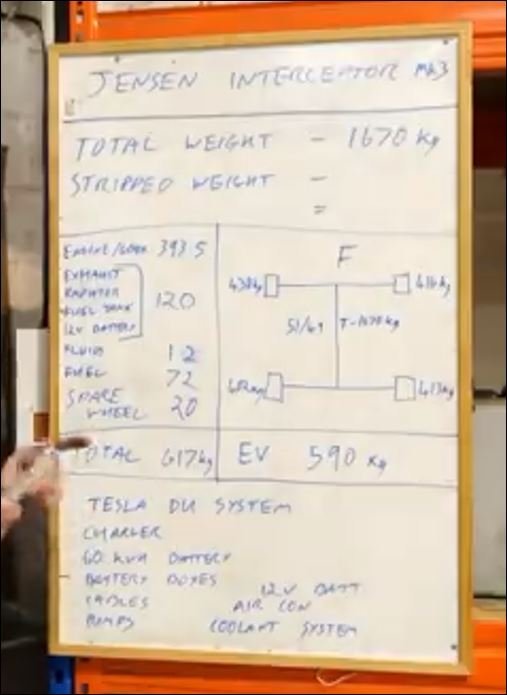 JENSEN INTERCEPTOR MK3
TOTAL WEIGHT - 1670 Kg
STRIPPED WEIGHT -
=
ENGINE/GBOX 393.5
EXHAUST
RADIATOR
FUEL TANK
12V BATTERY
120
FLUID 12
FUEL 72
SPARE WHEEL 20
TOTAL 617kg
F
430kg
416kg
51/49
T-1670kg
413kg
EV 590 Kg
TESLA DU SYSTEM
CHARGER
60 KWH BATTERY
BATTERY BOXES
CABLES
PUMPS
12V BATT
AIR CON
COOLANT SYSTEM